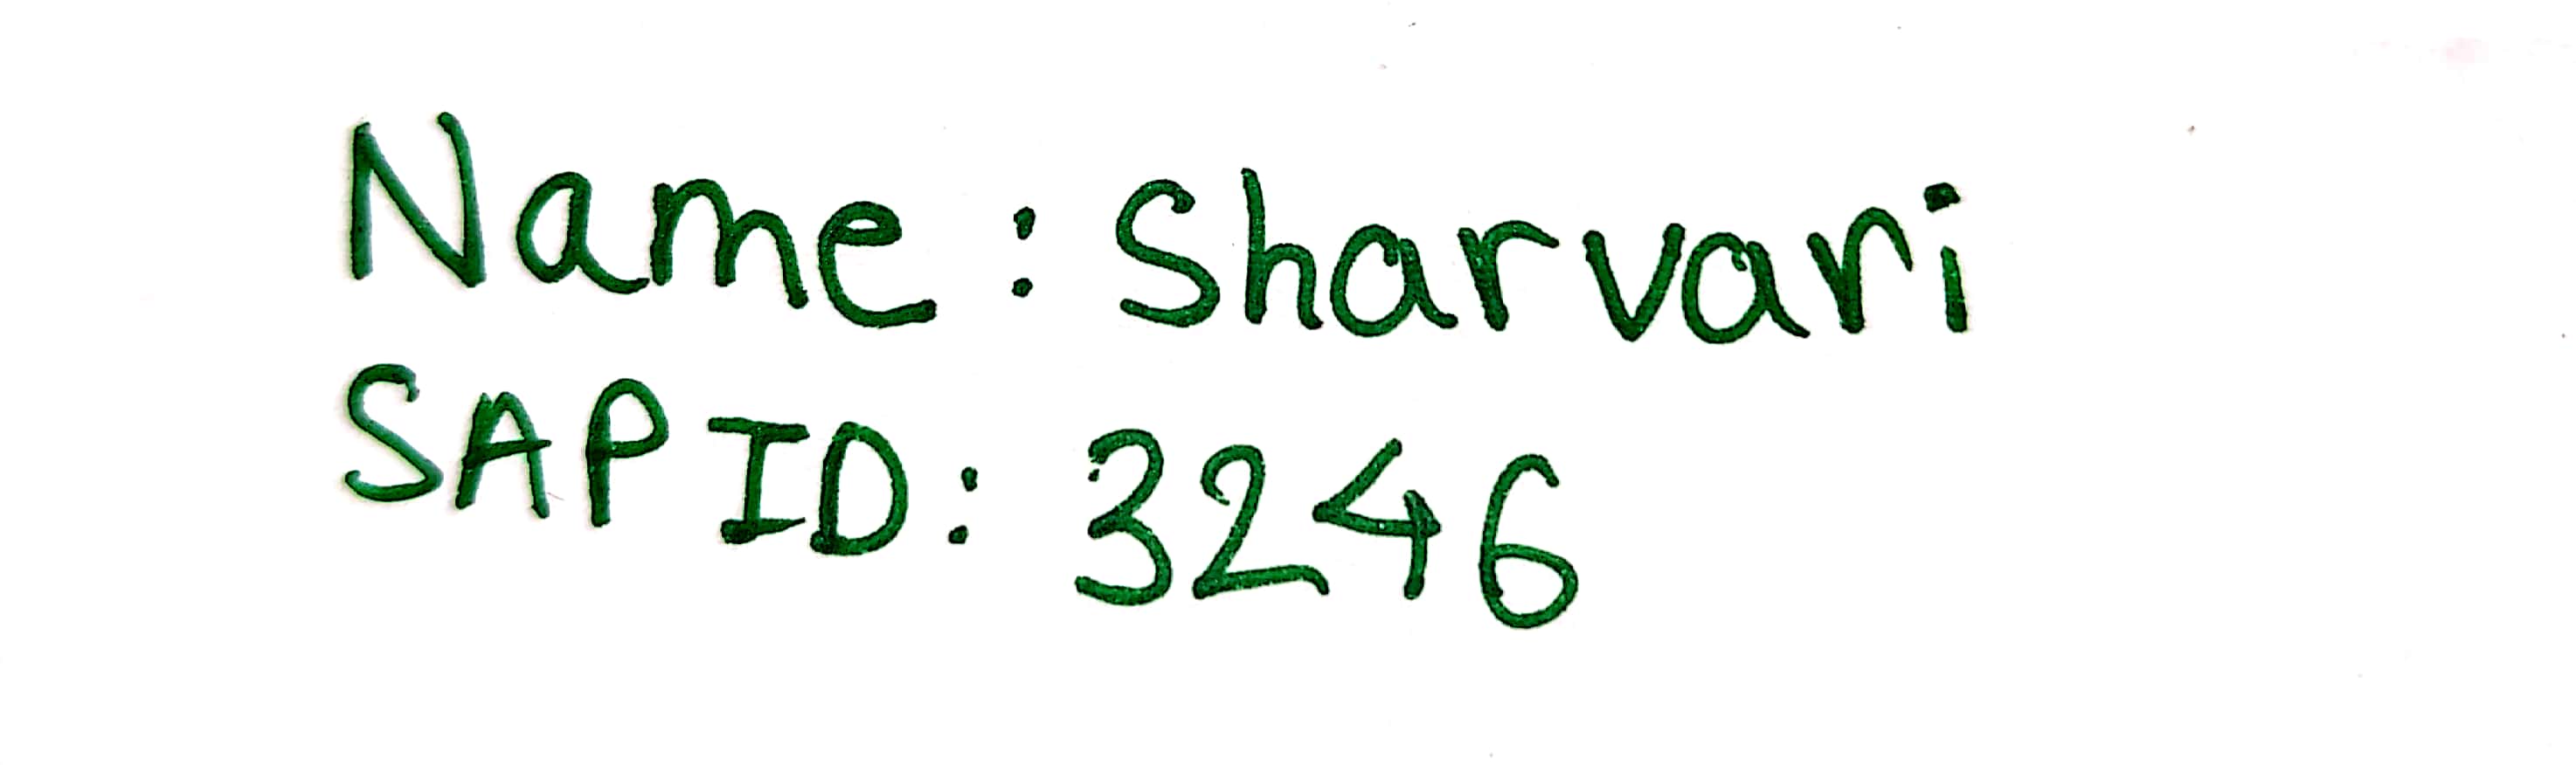 Name : Sharvari
SAP ID : 3246